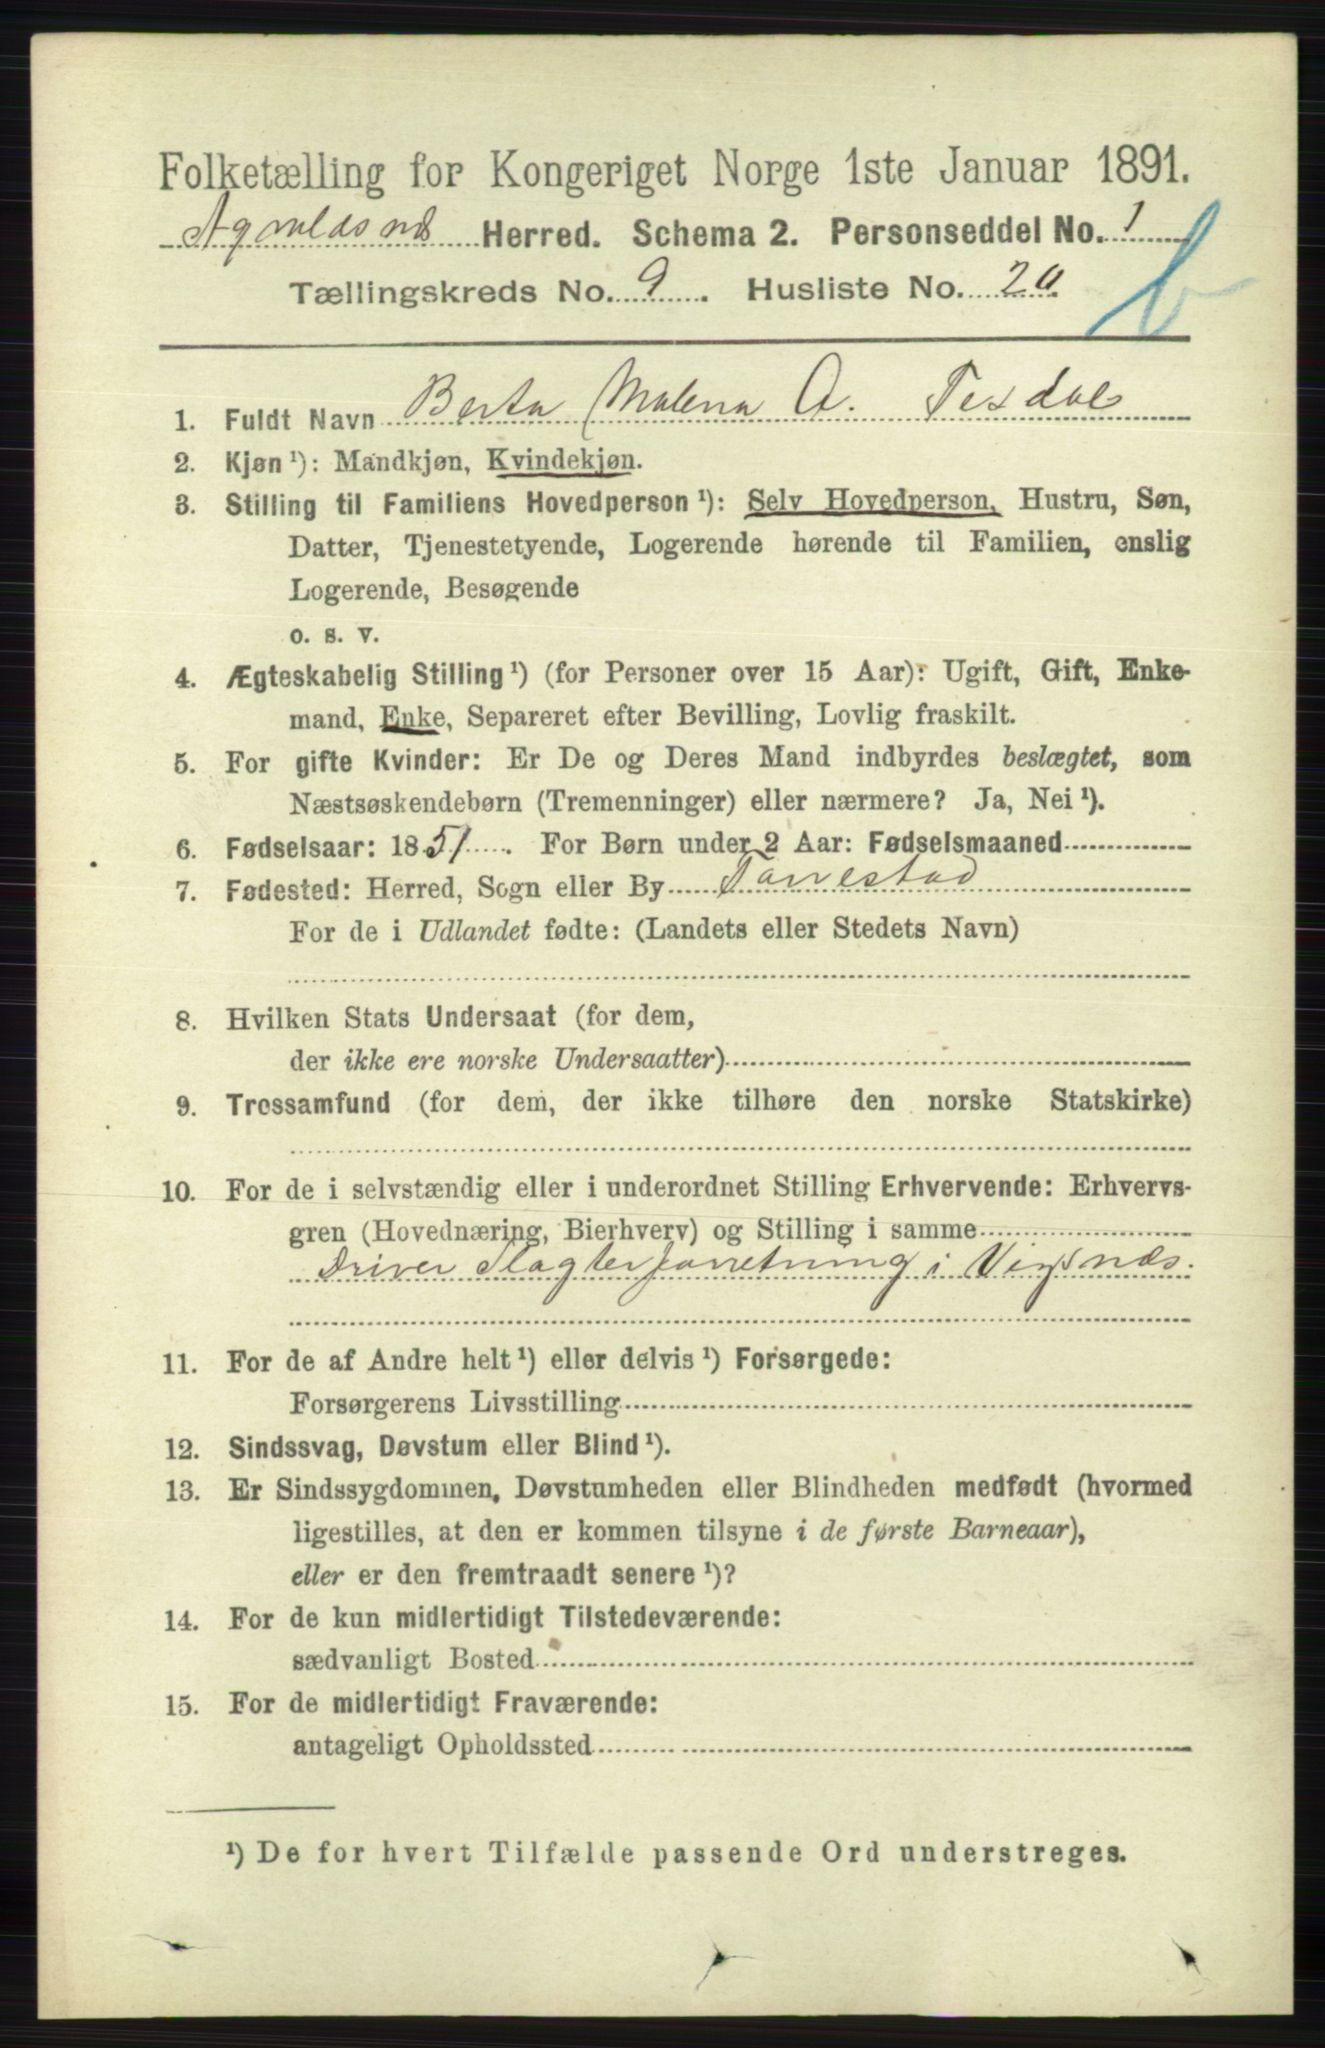 Folketælling for Kongeriget Norge 1ste Januar 1891.
Herred. Schema 2. Personseddel No. 1
b
Tællingskreds No. 9. Husliste No. 20.
1. Fuldt Navn Berta Malena A. Tesdal
2. Kjøn ¹): Mandkjøn, Kvindekjøn.
3. Stilling til Familiens Hovedperson ¹): Selv Hovedperson, Hustru, Søn,
Datter, Tjenestetyende, Logerende hørende til Familien, enslig
Logerende, Besøgende
o. s. v.
4. Ægteskabelig Stilling ¹) (for Personer over 15 Aar): Ugift, Gift, Enke-
mand, Enke, Separeret efter Bevilling, Lovlig fraskilt.
5. For gifte Kvinder: Er De og Deres Mand indbyrdes beslægtet, som
Næstsøskendebørn (Tremenninger) eller nærmere? Ja, Nei ¹).
6. Fødselsaar: 1851. For Børn under 2 Aar: Fødselsmaaned
7. Fødested: Herred, Sogn eller By Torvestad
For de i Udlandet fødte: (Landets eller Stedets Navn)
8. Hvilken Stats Undersaat (for dem,
der ikke ere norske Undersaatter)
9. Trossamfund (for dem, der ikke tilhøre den norske Statskirke)
10. For de i selvstændig eller i underordnet Stilling Erhvervende: Erhvervs-
gren (Hovednæring, Bierhverv) og Stilling i samme
Driver Slagterforretning i Vigsnæs.
11. For de af Andre helt ¹) eller delvis ¹) Forsørgede:
Forsørgerens Livsstilling
12. Sindssvag, Døvstum eller Blind ¹).
13. Er Sindssygdommen, Døvstumheden eller Blindheden medfødt (hvormed
ligestilles, at den er kommen tilsyne i de første Barneaar),
eller er den fremtraadt senere ¹)?
14. For de kun midlertidigt Tilstedeværende:
sædvanligt Bosted
15. For de midlertidigt Fraværende:
antageligt Opholdssted
¹) De for hvert Tilfælde passende Ord understreges.